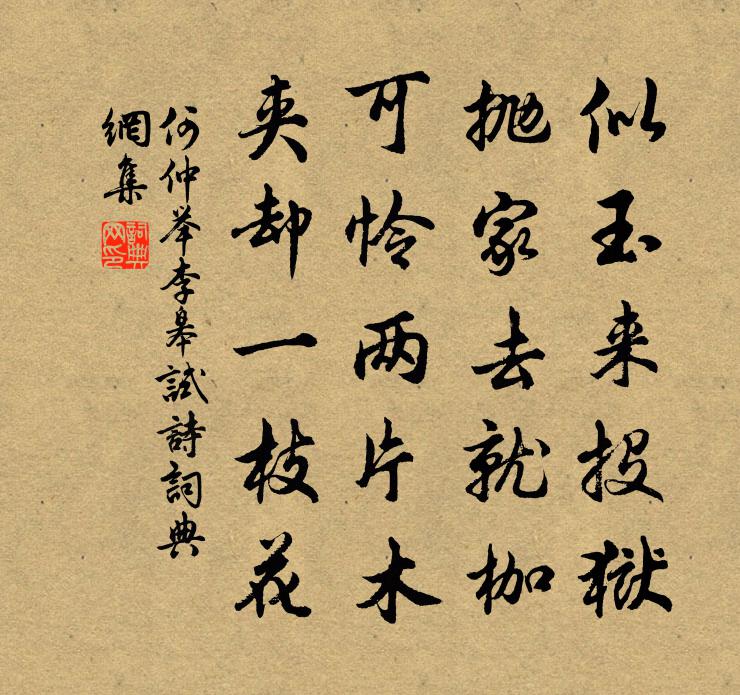 似玉来投獄
抛家去就枷
可怜两片木
夹却一枝花
何仲举李皋試詩詞典
網集
詞典网印